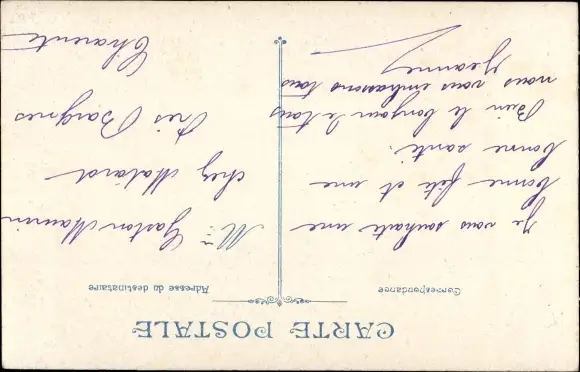 CARTE POSTALE
Correspondance
Je vous souhaite une
bonne fête et une
bonne santé.
Bien le bonjour de tous
nous vous embrassons tous
Jeanne
Adresse du destinataire
Mr Gaston Maurin
chez Matard
Près Baignes
Charente